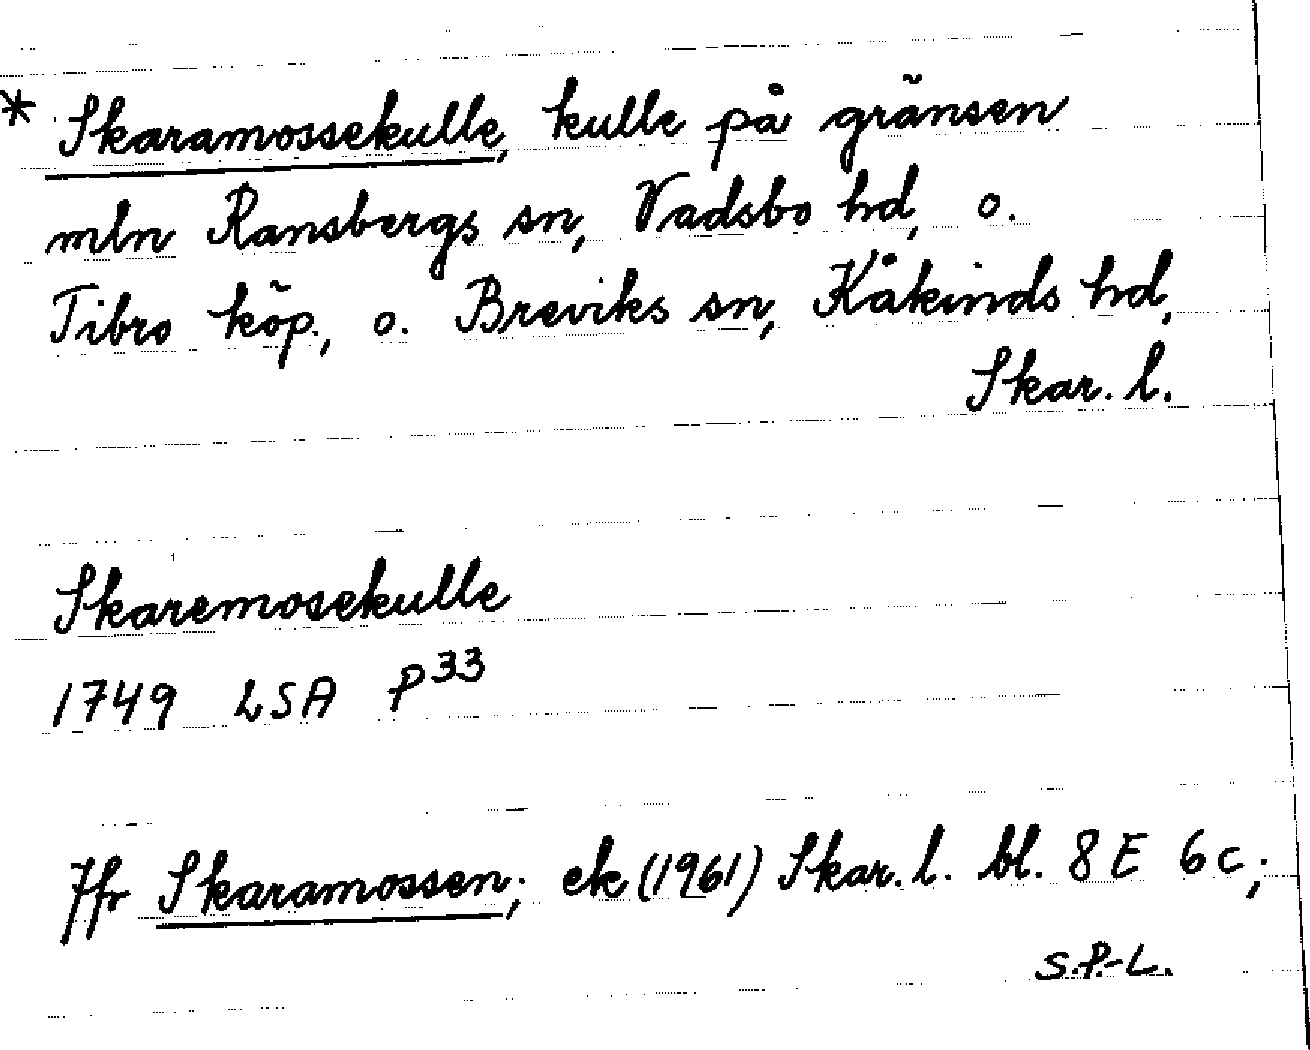 * Skaramossekulle, kulle på gränsen
mln Ransbergs sn, Vadsbo hd, o.
Tibro köp., o. Breviks sn, Kåkinds hd,
Skar. l.
Skaremosekulle
1749 LSA P33
Jfr Skaramossen; ek (1961) Skar. l. bl. 8 E 6 c;
S.P.-L.